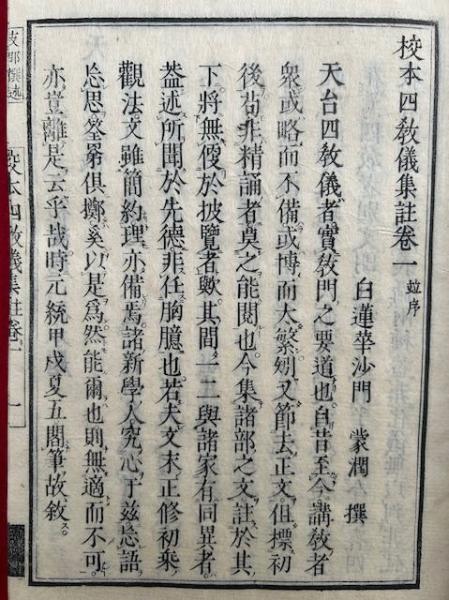 校本四敎儀集註卷一 並序
白蓮華沙門 蒙潤 撰
天台四敎儀者實敎門之要道也自昔至今講敎者
衆或略而不備或博而大繁矧又節去正文但標初
後苟非精誦者莫之能閱也今集諸部之文註於其
下將無便於披覽者歟其間一二與諸家有同異者
蓋述所聞於先德非任胸臆也若夫文末正修初乘
觀法文雖簡約理亦備焉諸新學人究心于玆忘語
忘思筌罤俱擲奚以是爲然能爾也則無適而不可
亦豈離是云乎哉時元統甲戌夏五閣筆故敘
支那撰述 校本四敎儀集註卷一 一